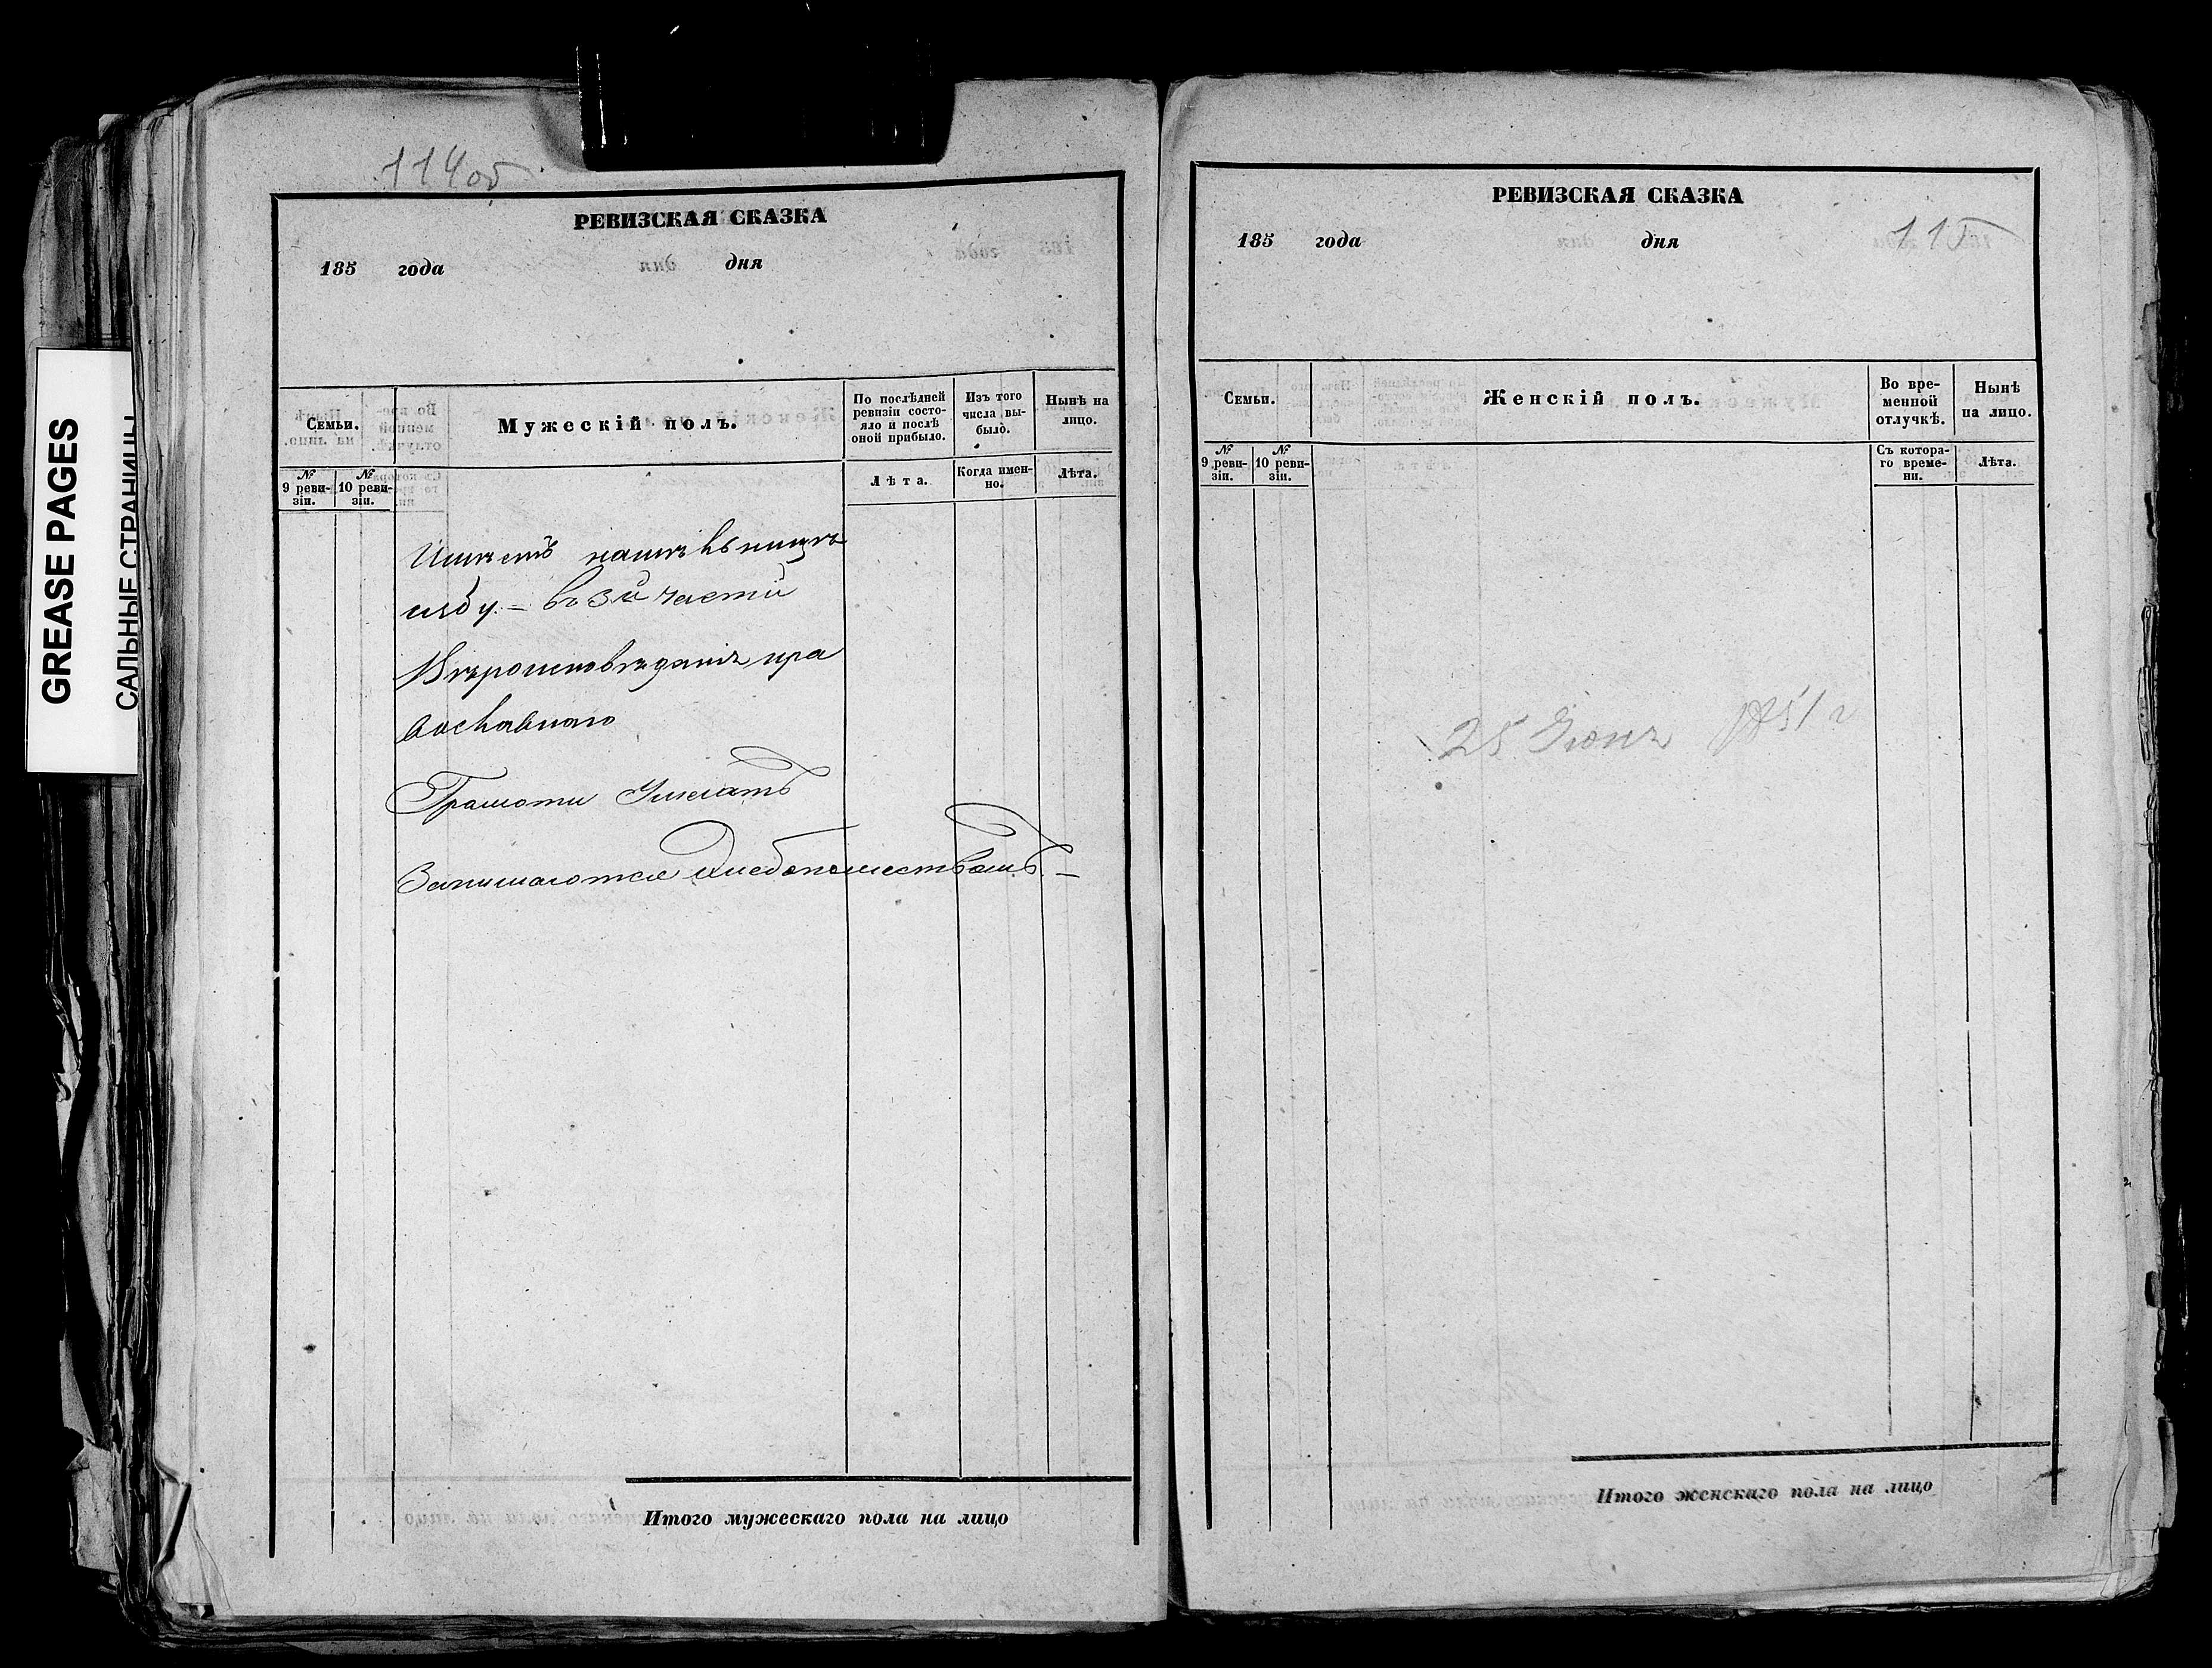 GREASE PAGES
САЛЬНЫЕ СТРАНИЦЫ
114об
РЕВИЗСКАЯ СКАЗКА
185 года дня
Семьи.
Мужескій полъ.
По послѣдней ревизіи состо-
яло и послѣ
оной прибыло.
Изъ того
числа вы-
было.
Нынѣ на
лицо.
№
9 реви-
зіи.
№
10 реви-
зіи.
Лѣта.
Когда имен-
но.
Лѣта.
въ 3й части
Вѣроисповѣданія пра
вославнаго
Грамоти
Занимаются хлебопашествомъ. –
Итого мужескаго пола на лицо
РЕВИЗСКАЯ СКАЗКА
185 года дня
115
Семьи.
Женскій полъ.
Во вре-
менной
отлучкѣ.
Нынѣ
на лицо.
№
9 реви-
зіи.
№
10 реви-
зіи.
Съ котора-
го време-
ни.
Лѣта.
25 Июня 1851 г
Итого женскаго пола на лицо